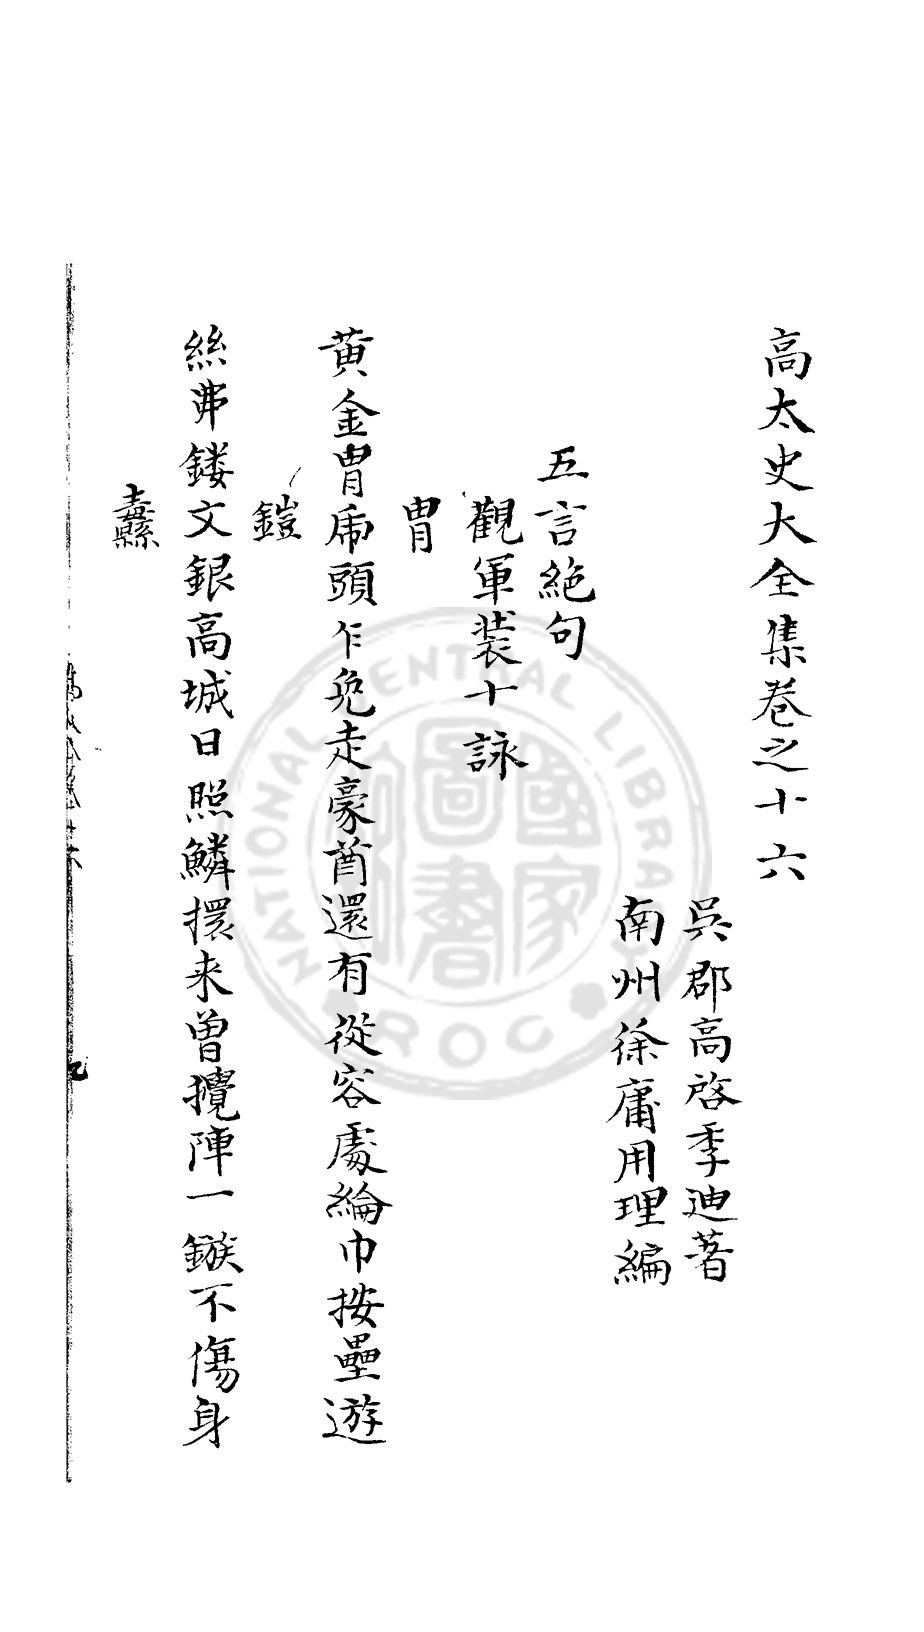 高太史大全集卷之十六
吳郡高啓季迪著
南州徐庸用理編
五言絕句
觀軍裝十詠
胄
黄金胄虎頭乍免走豪酋還有從容處綸巾按壘遊
鎧
絲弗鏤文銀高城日照鱗擐来曾攪陣一鏃不傷身
纛
NATIONAL CENTRAL LIBRARY
ROC
國家圖書